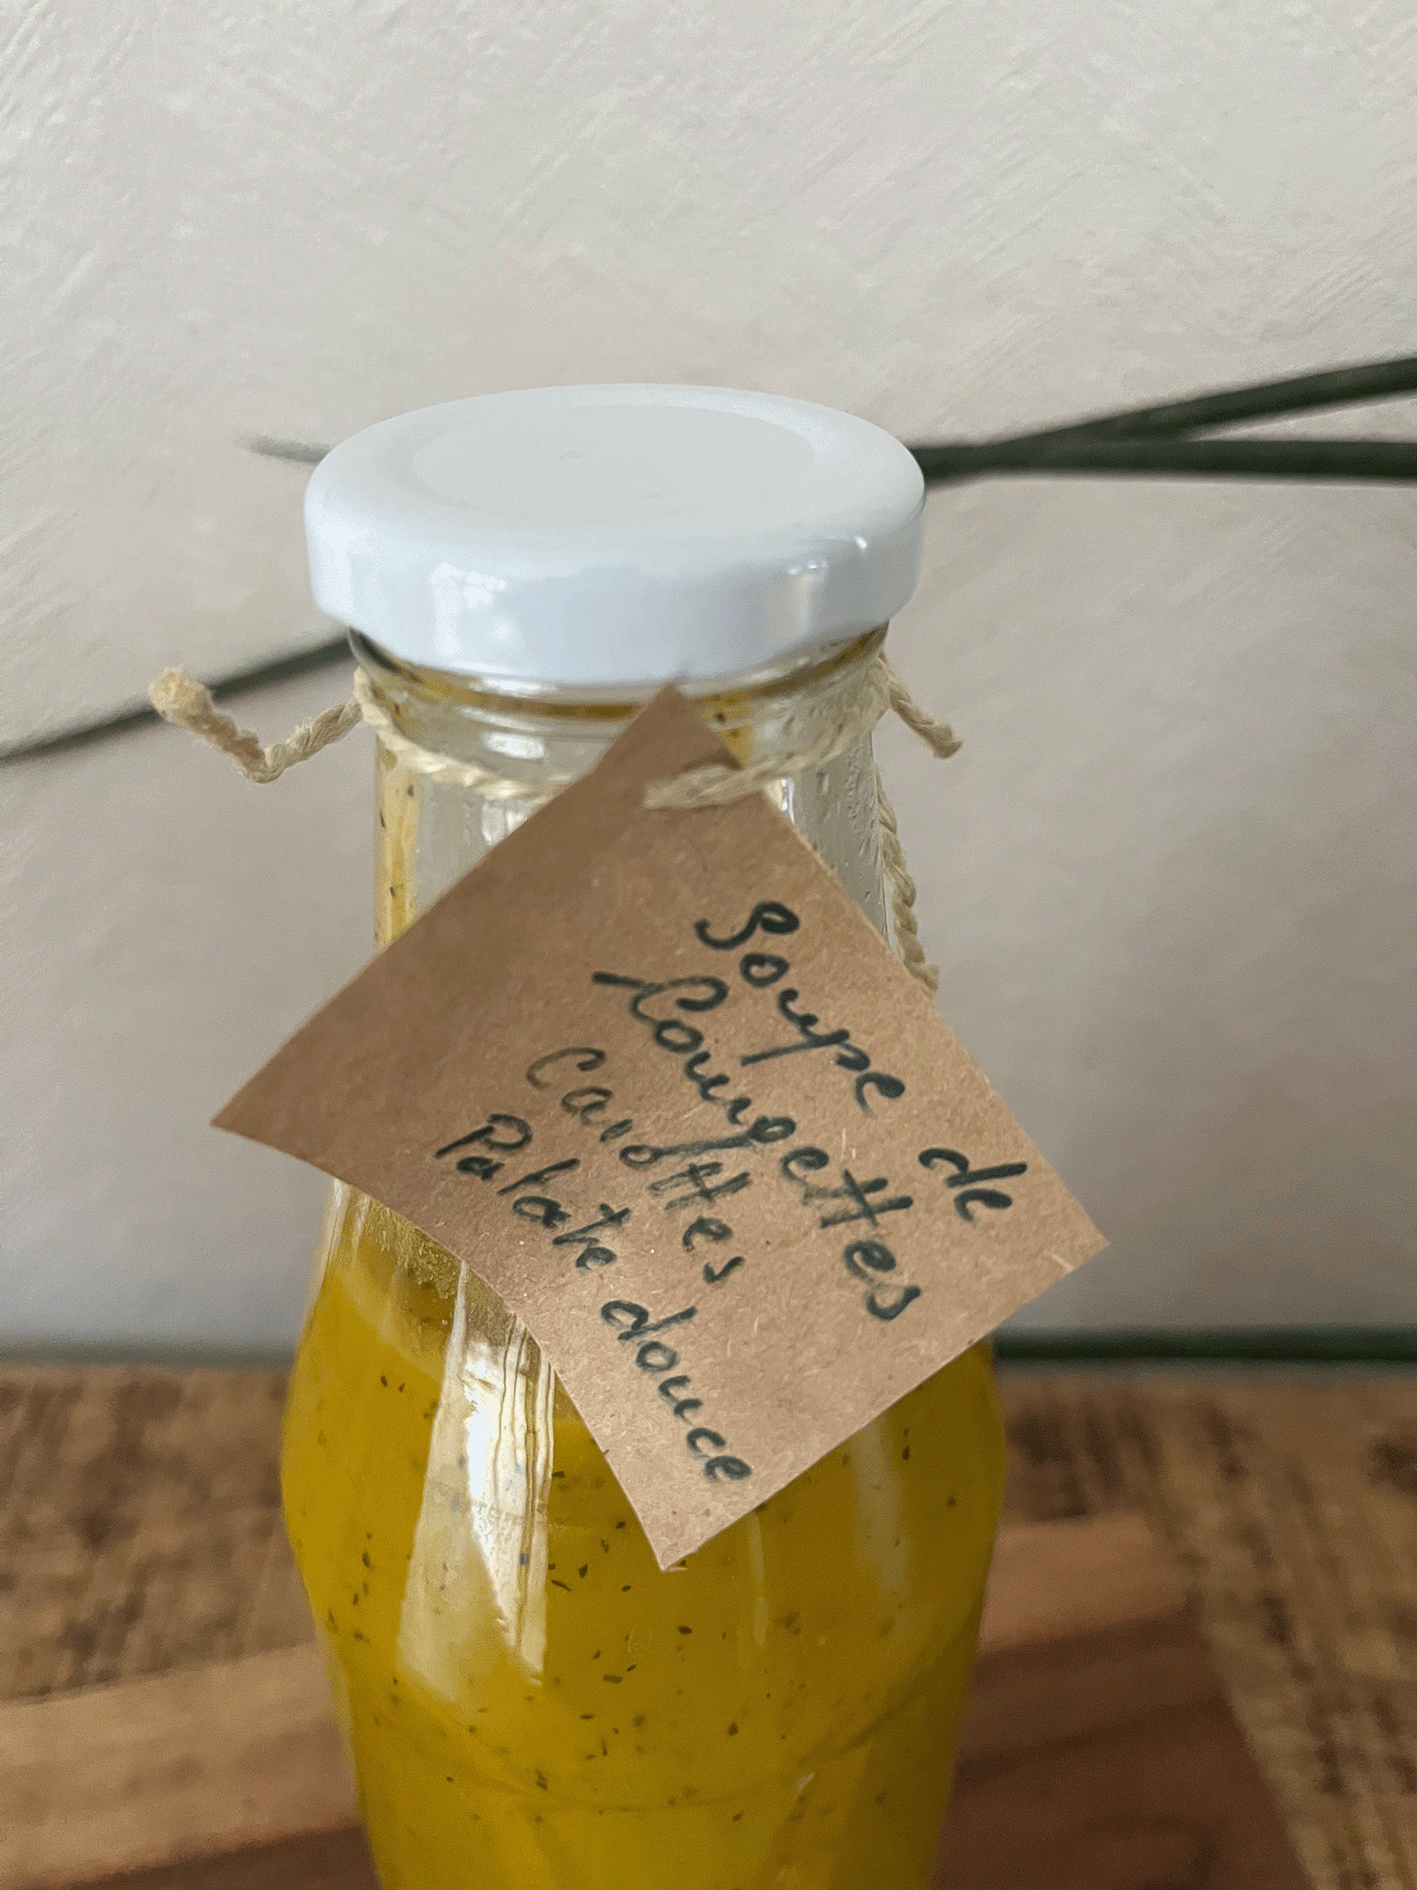 Soupe de
Courgettes
Carottes
Patate douce